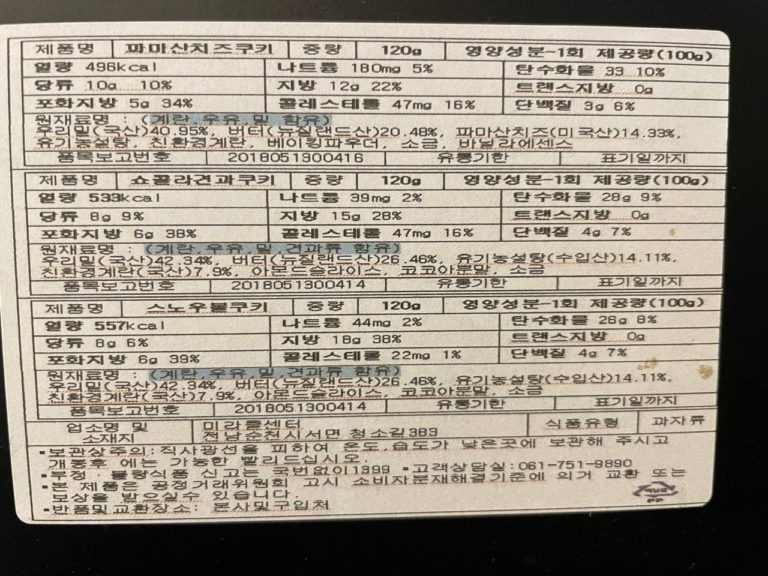 제품명 파마산치즈쿠키 중량 120g 영양성분-1회 제공량(100g)
열량 496kcal 나트륨 180mg 5% 탄수화물 33 10%
당류 10g 10% 지방 12g 22% 트랜스지방 0g
포화지방 5g 34% 콜레스테롤 47mg 16% 단백질 3g 6%
원재료명 : (계란,우유,밀 함유)
우리밀(국산)40.95%, 버터(뉴질랜드산)20.48%, 파마산치즈(미국산)14.33%,
유기농설탕, 친환경계란, 베이킹파우더, 소금, 바닐라에센스
품목보고번호 2018051300416 유통기한 표기일까지
제품명 쇼콜라견과쿠키 중량 120g 영양성분-1회 제공량(100g)
열량 533kcal 나트륨 39mg 2% 탄수화물 28g 9%
당류 8g 9% 지방 15g 28% 트랜스지방 0g
포화지방 6g 38% 콜레스테롤 47mg 16% 단백질 4g 7%
원재료명 : (계란,우유,밀,견과류 함유)
우리밀(국산)42.34%, 버터(뉴질랜드산)26.46%, 유기농설탕(수입산)14.11%,
친환경계란(국산)7.9%, 아몬드슬라이스, 코코아분말, 소금
품목보고번호 2018051300414 유통기한 표기일까지
제품명 스노우볼쿠키 중량 120g 영양성분-1회 제공량(100g)
열량 557kcal 나트륨 44mg 2% 탄수화물 26g 8%
당류 8g 6% 지방 18g 38% 트랜스지방 0g
포화지방 6g 39% 콜레스테롤 22mg 1% 단백질 4g 7%
원재료명 : (계란,우유,밀,견과류 함유)
우리밀(국산)42.34%, 버터(뉴질랜드산)26.46%, 유기농설탕(수입산)14.11%,
친환경계란(국산)7.9%, 아몬드슬라이스, 코코아분말, 소금
품목보고번호 2018051300414 유통기한 표기일까지
업소명 및 소재지 미라클센터 식품유형 과자류
전남순천시서면 청소길383
•보관상주의:직사광선을 피하여 온도,습도가 낮은곳에 보관해 주시고
개봉후 에는 가능한 빨리드십시오.
•부정 · 불량식품 신고는 국번없이1399 •고객상담실:061-751-9890
•본 제품은 공정거래위원회 고시 소비자분재해결기준에 의거 교환 또는
보상을 받으실수 있습니다.
•반품및교환장소: 본사및구입처
PP